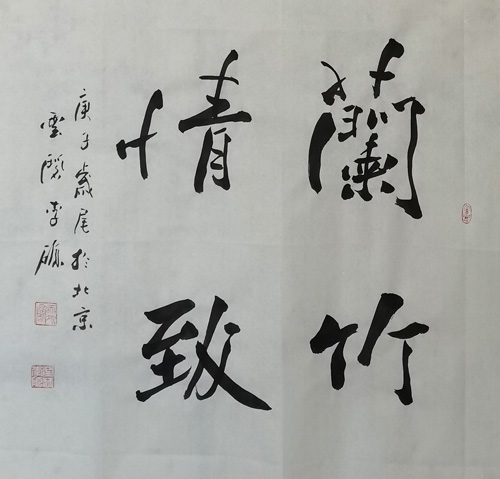 蘭竹
情致
庚子歲尾於北京
雲閣李碩